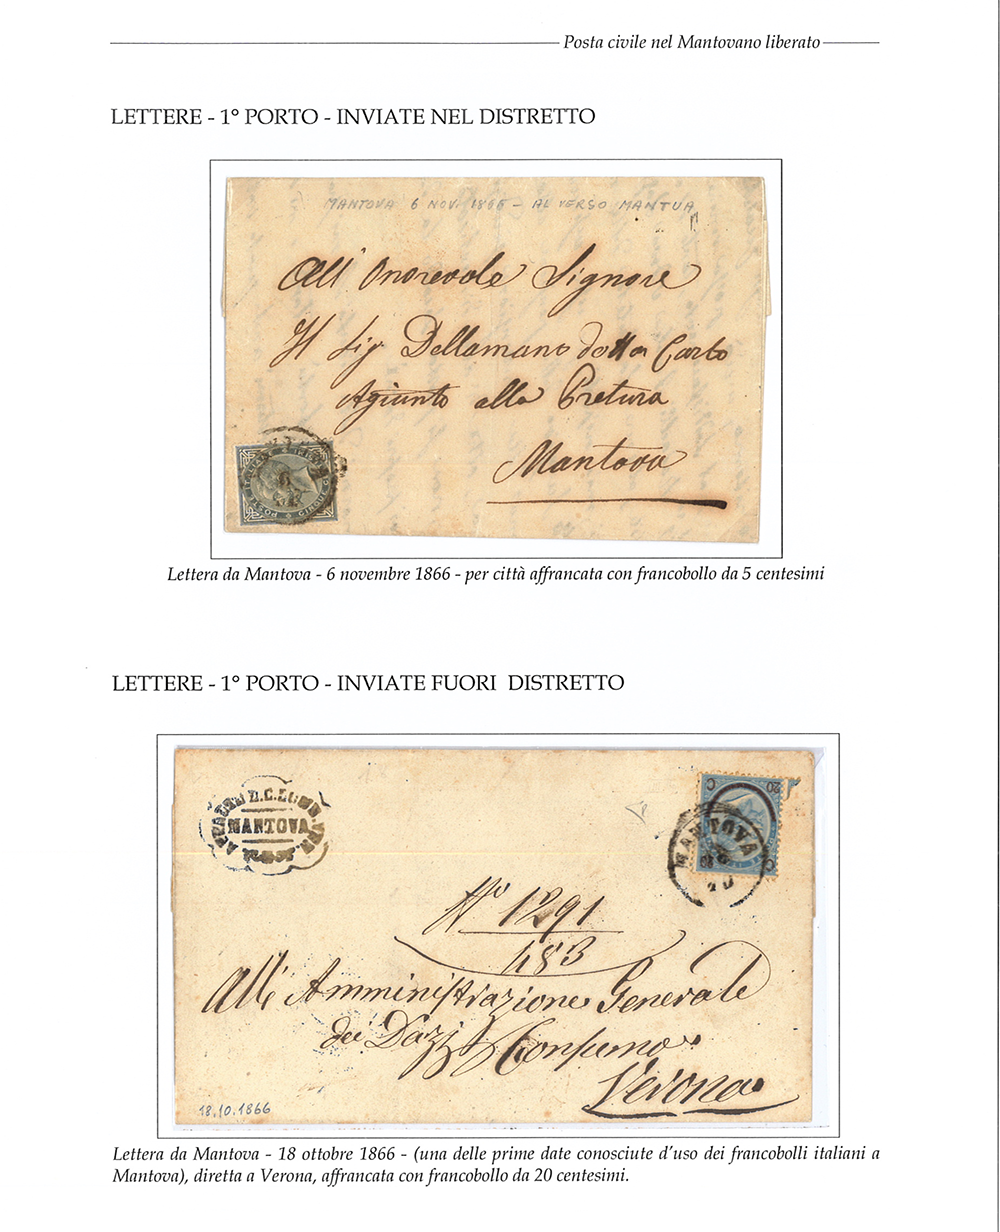 Posta civile nel Mantovano liberato
LETTERE - 1° PORTO - INVIATE NEL DISTRETTO
MANTOVA 6 NOV. 1866 - AL VERSO MANTUA
All' Onorevole Signore
Il Sig. Dellamano dottor Carlo
Agiunto alla Pretura
Mantova
Lettera da Mantova - 6 novembre 1866 - per città affrancata con francobollo da 5 centesimi
LETTERE - 1° PORTO - INVIATE FUORI DISTRETTO
MANTOVA
C 20 C
MANTOVA
N° 1291
483
All' Amministrazione Generale
dei Dazj Consumo
Verona
18.10.1866
Lettera da Mantova - 18 ottobre 1866 - (una delle prime date conosciute d'uso dei francobolli italiani a
Mantova), diretta a Verona, affrancata con francobollo da 20 centesimi.